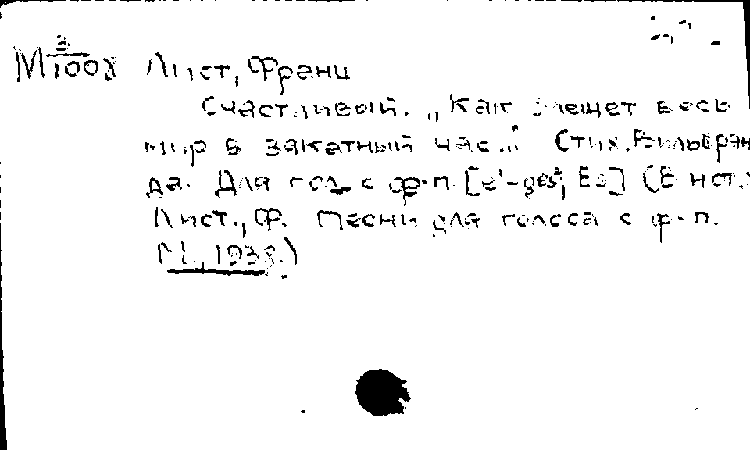 М 3/1008 Лист, Франц
Счастливый. „Как блещет весь
мир в закатный час..." Стих. Вильбран
да. Для гол. с ф-п. [e¹-ges², Es] (В нот.:
Лист, Ф. Песни для голоса с ф-п.
М., 1938.)